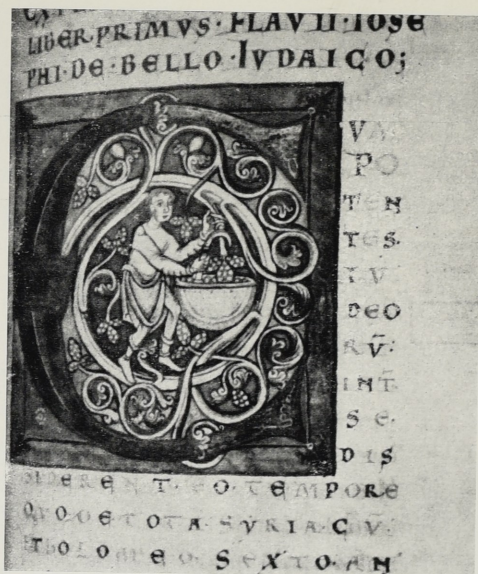 LIBER·PRIMVS·FLAVII·IOSE
PHI·DE·BELLO·IVDAICO;
C
PO
TEN
TES·
IV
DEO
RV̄·
INT̄·
SE·
DIS
SIDERENT·EO·TEMPORE
QVO DE TOTA·SYRIA·CV̄·
THOLOMEO·SEXTO·AN